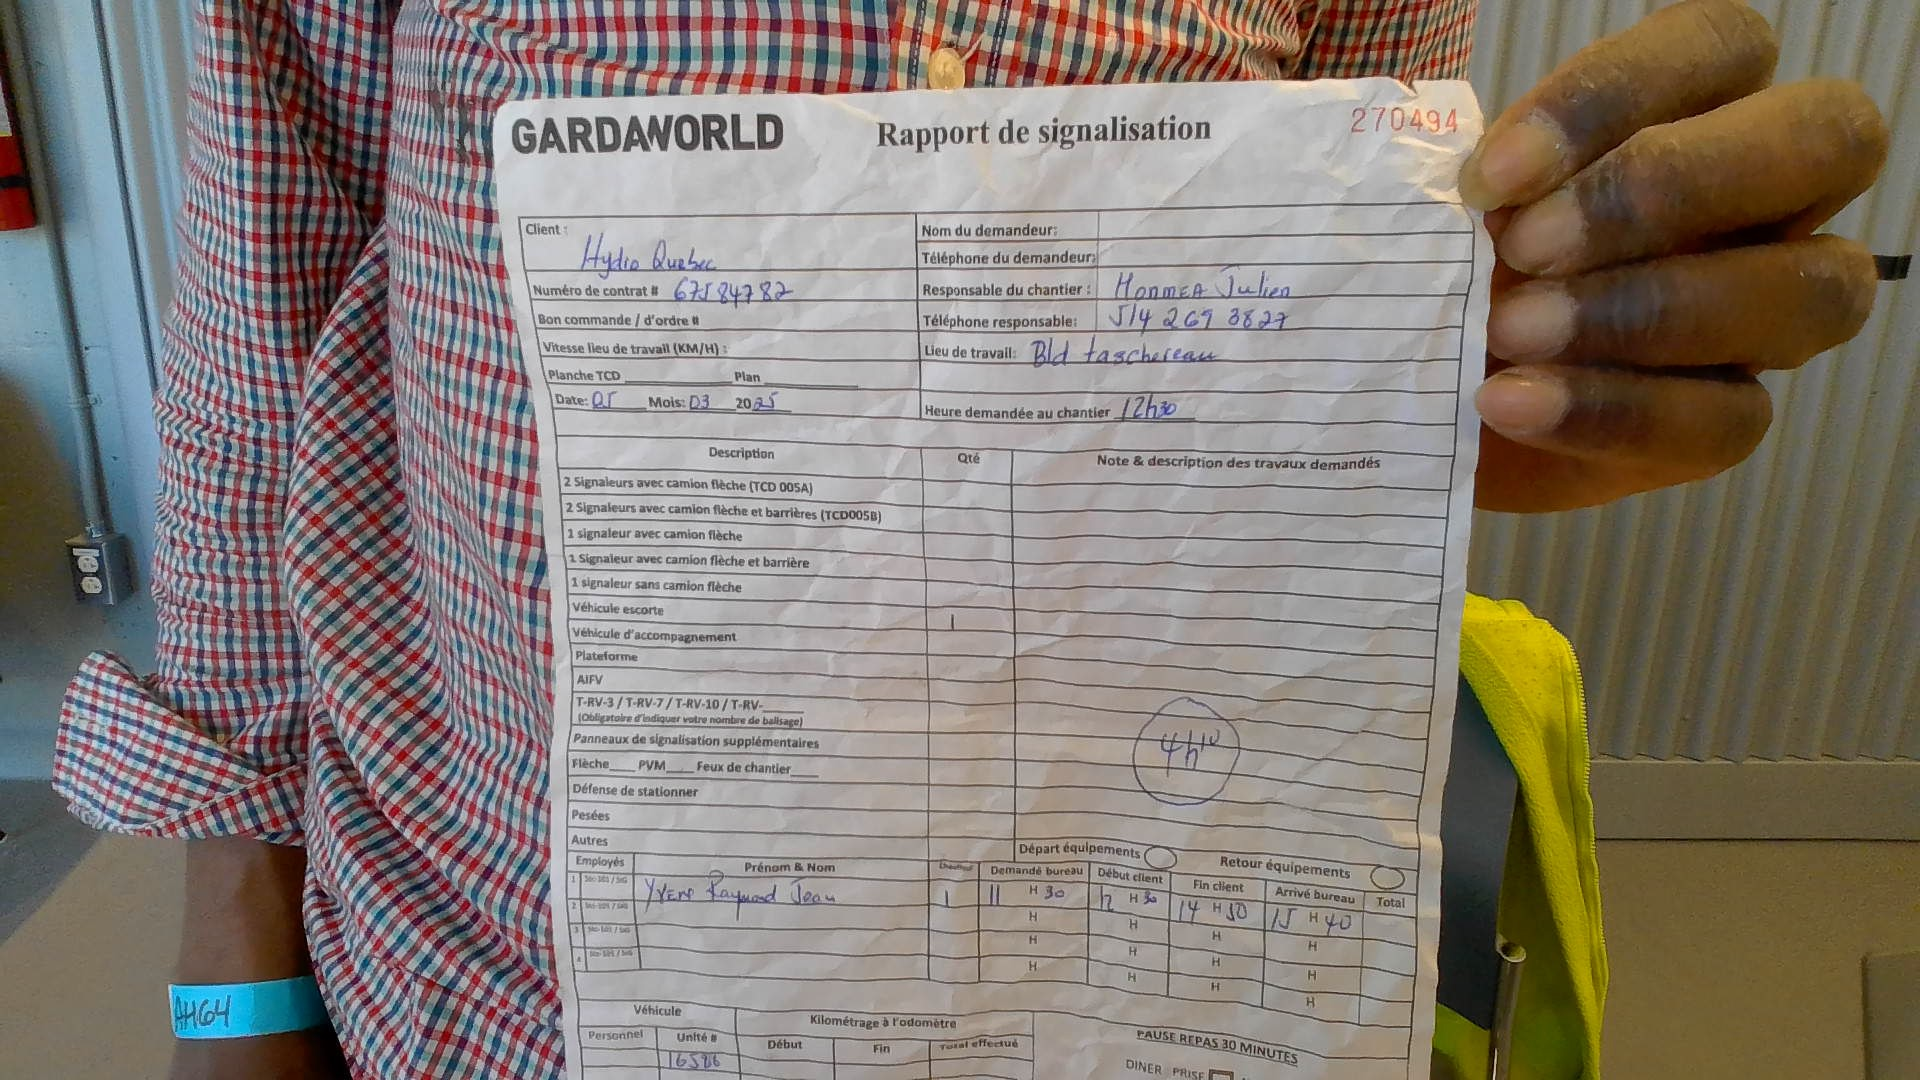 GARDAWORLD
Rapport de signalisation
270494
Client : Hydro Quebec
Nom du demandeur:
Téléphone du demandeur:
Numéro de contrat # 67584782
Responsable du chantier : Honmea Julien
Bon commande / d'ordre #
Téléphone responsable: 514 269 3827
Vitesse lieu de travail (KM/H) :
Lieu de travail: Bld taschereau
Planche TCD Plan
Date: 05 Mois: 03 2025
Heure demandée au chantier 12h30
Description Qté Note & description des travaux demandés
2 Signaleurs avec camion flèche (TCD 005A)
2 Signaleurs avec camion flèche et barrières (TCD005B)
1 signaleur avec camion flèche
1 Signaleur avec camion flèche et barrière
1 signaleur sans camion flèche
Véhicule escorte 1
Véhicule d'accompagnement
Plateforme
AIFV
T-RV-3 / T-RV-7 / T-RV-10 / T-RV-
(Obligatoire d'indiquer votre nombre de balisage)
Panneaux de signalisation supplémentaires
4h10
Flèche PVM Feux de chantier
Défense de stationner
Pesées
Autres
Départ équipements Retour équipements
Employés Prénom & Nom Demandé bureau Début client Fin client Arrivé bureau Total
1 Raymond Jean 1 11 H 30 12 H 30 14 H 50 15 H 40
2 H H H H
3 H H H H
4 H H H H
Véhicule Kilométrage à l'odomètre
PAUSE REPAS 30 MINUTES
Personnel Unité # Début Fin Total effectué
16586
DINER PRISE
AH64